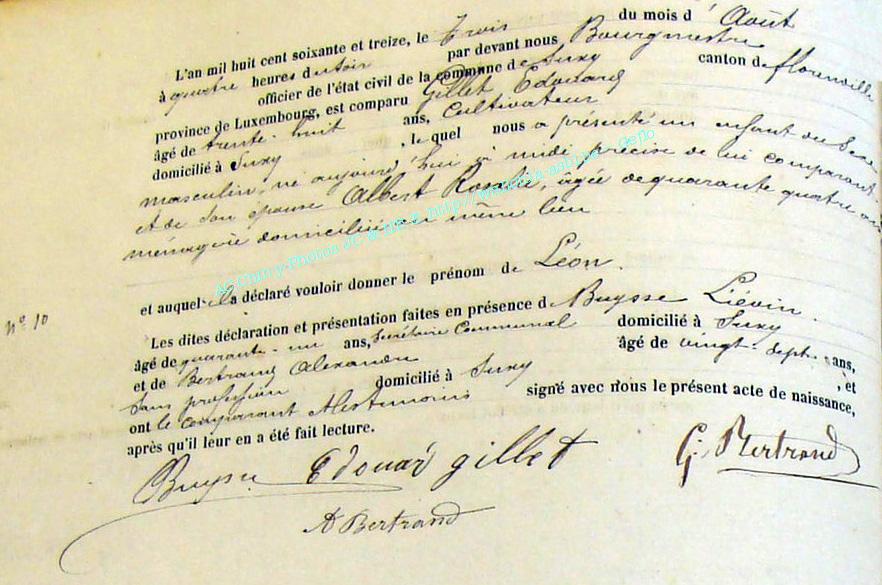 L'an mil huit cent soixante et treize, le Trois du mois d'Août
à quatre heures du soir par devant nous Bourgmestre
officier de l'état civil de la commune de Suxy canton de florenville
province de Luxembourg, est comparu Gillet Edouard
âgé de trente-huit ans, Cultivateur
domicilié à Suxy, le quel nous a présenté un enfant du Sexe
masculin, né aujourd'hui à midi précise de lui comparant
et de son épouse Albert Rosalie, âgée de quarante quatre ans
ménagère domiciliée au même lieu
et auquel il a déclaré vouloir donner le prénom de Léon.
N° 10
Les dites déclaration et présentation faites en présence de Buysse Liévin
âgé de quarante-un ans, Secrétaire Communal domicilié à Suxy
et de Bertrand Alexandre âgé de vingt-sept ans,
Sans profession domicilié à Suxy, et
ont le comparant et les témoins signé avec nous le présent acte de naissance,
après qu'il leur en a été fait lecture.
Buysse Edouar gillet G. Bertrand
A Bertrand